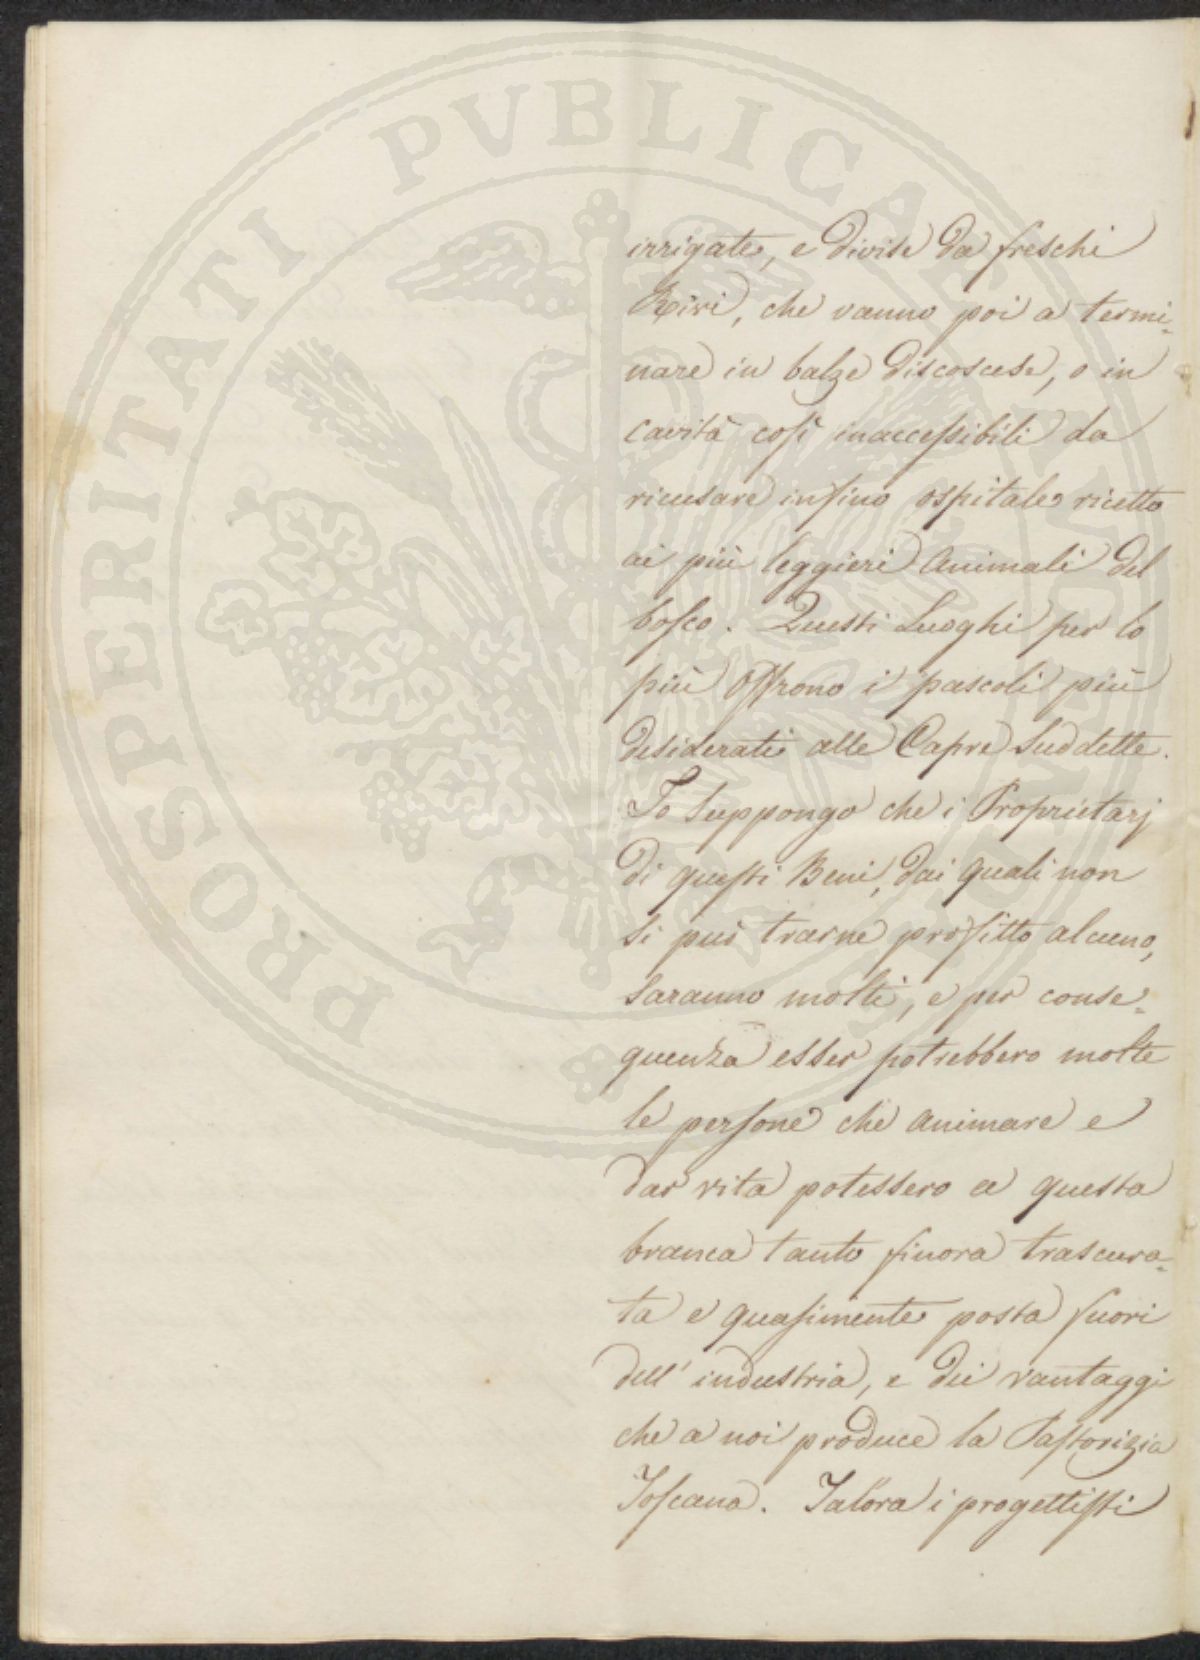 PROSPERITATI PVBLICAE
irrigate, e divise da freschi
Rivi, che vanno poi a termi=
nare in balze discoscese, o in
cavità così inaccessibili da
ricusare infino ospitale ricetto
ai più leggieri animali del
bosco. Questi Luoghi per lo
più offrono i pascoli più
desiderati alle Capre suddette.
Io suppongo che i Proprietarj
di questi Beni, dai quali non
si può trarne profitto alcuno,
saranno molti, e per conse=
guenza esser potrebbero molte
le persone che animare e
dar vita potessero a questa
branca tanto finora trascura=
ta e quasimente posta fuori
dell' industria, e dei vantaggi
che a noi produce la Pastorizia
Toscana. Talora i progettisti